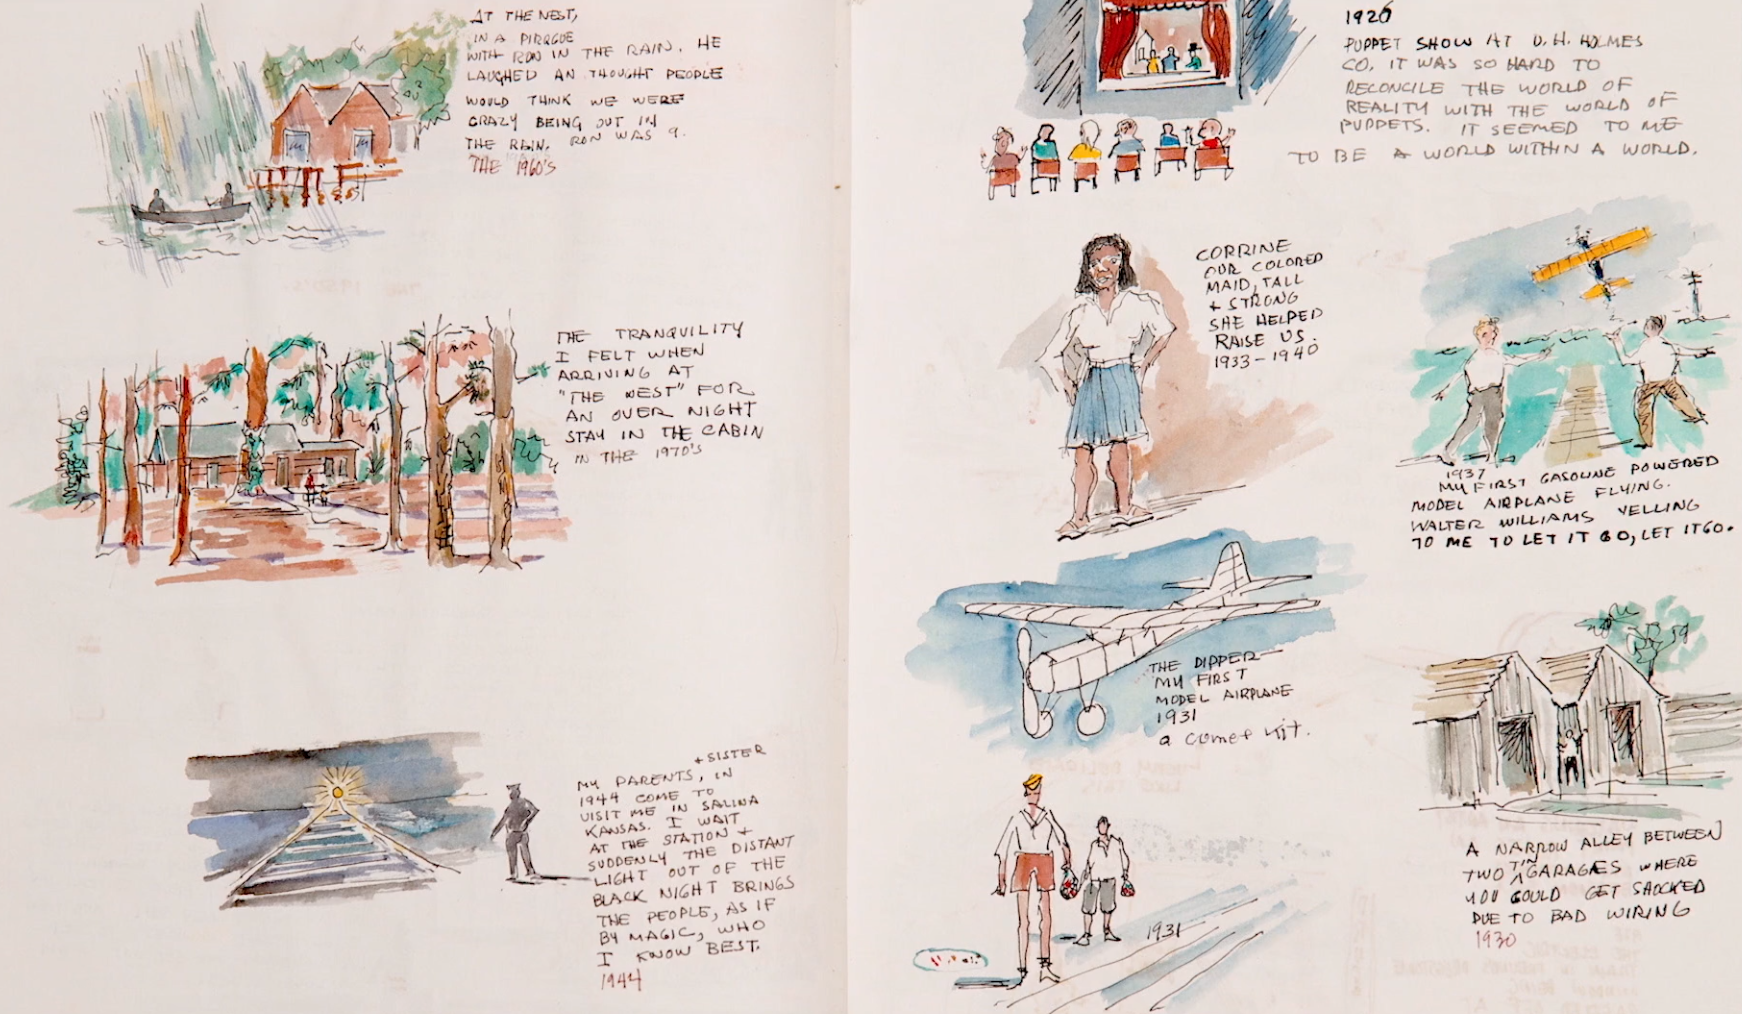 AT THE NEST,
IN A PIROGUE
WITH RON IN THE RAIN. HE
LAUGHED AN THOUGHT PEOPLE
WOULD THINK WE WERE
CRAZY BEING OUT IN
THE RAIN. RON WAS 9.
THE 1960'S
THE TRANQUILITY
I FELT WHEN
ARRIVING AT
"THE NEST" FOR
AN OVER NIGHT
STAY IN THE CABIN
IN THE 1970'S
+ SISTER
MY PARENTS, IN
1944 COME TO
VISIT ME IN SALINA
KANSAS. I WAIT
AT THE STATION +
SUDDENLY THE DISTANT
LIGHT OUT OF THE
BLACK NIGHT BRINGS
THE PEOPLE, AS IF
BY MAGIC, WHO
I KNOW BEST.
1944
1926
PUPPET SHOW AT D. H. HOLMES
CO. IT WAS SO HARD TO
RECONCILE THE WORLD OF
REALITY WITH THE WORLD OF
PUPPETS. IT SEEMED TO ME
TO BE A WORLD WITHIN A WORLD.
CORRINE
OUR COLORED
MAID, TALL
+ STRONG
SHE HELPED
RAISE US.
1933-1940
1937
MY FIRST GASOLINE POWERED
MODEL AIRPLANE FLYING.
WALTER WILLIAMS YELLING
TO ME TO LET IT GO, LET IT GO.
THE DIPPER
MY FIRST
MODEL AIRPLANE
1931
a comet kit.
1931
A NARROW ALLEY BETWEEN
TWO TIN GARAGES WHERE
YOU COULD GET SHOCKED
DUE TO BAD WIRING
1930